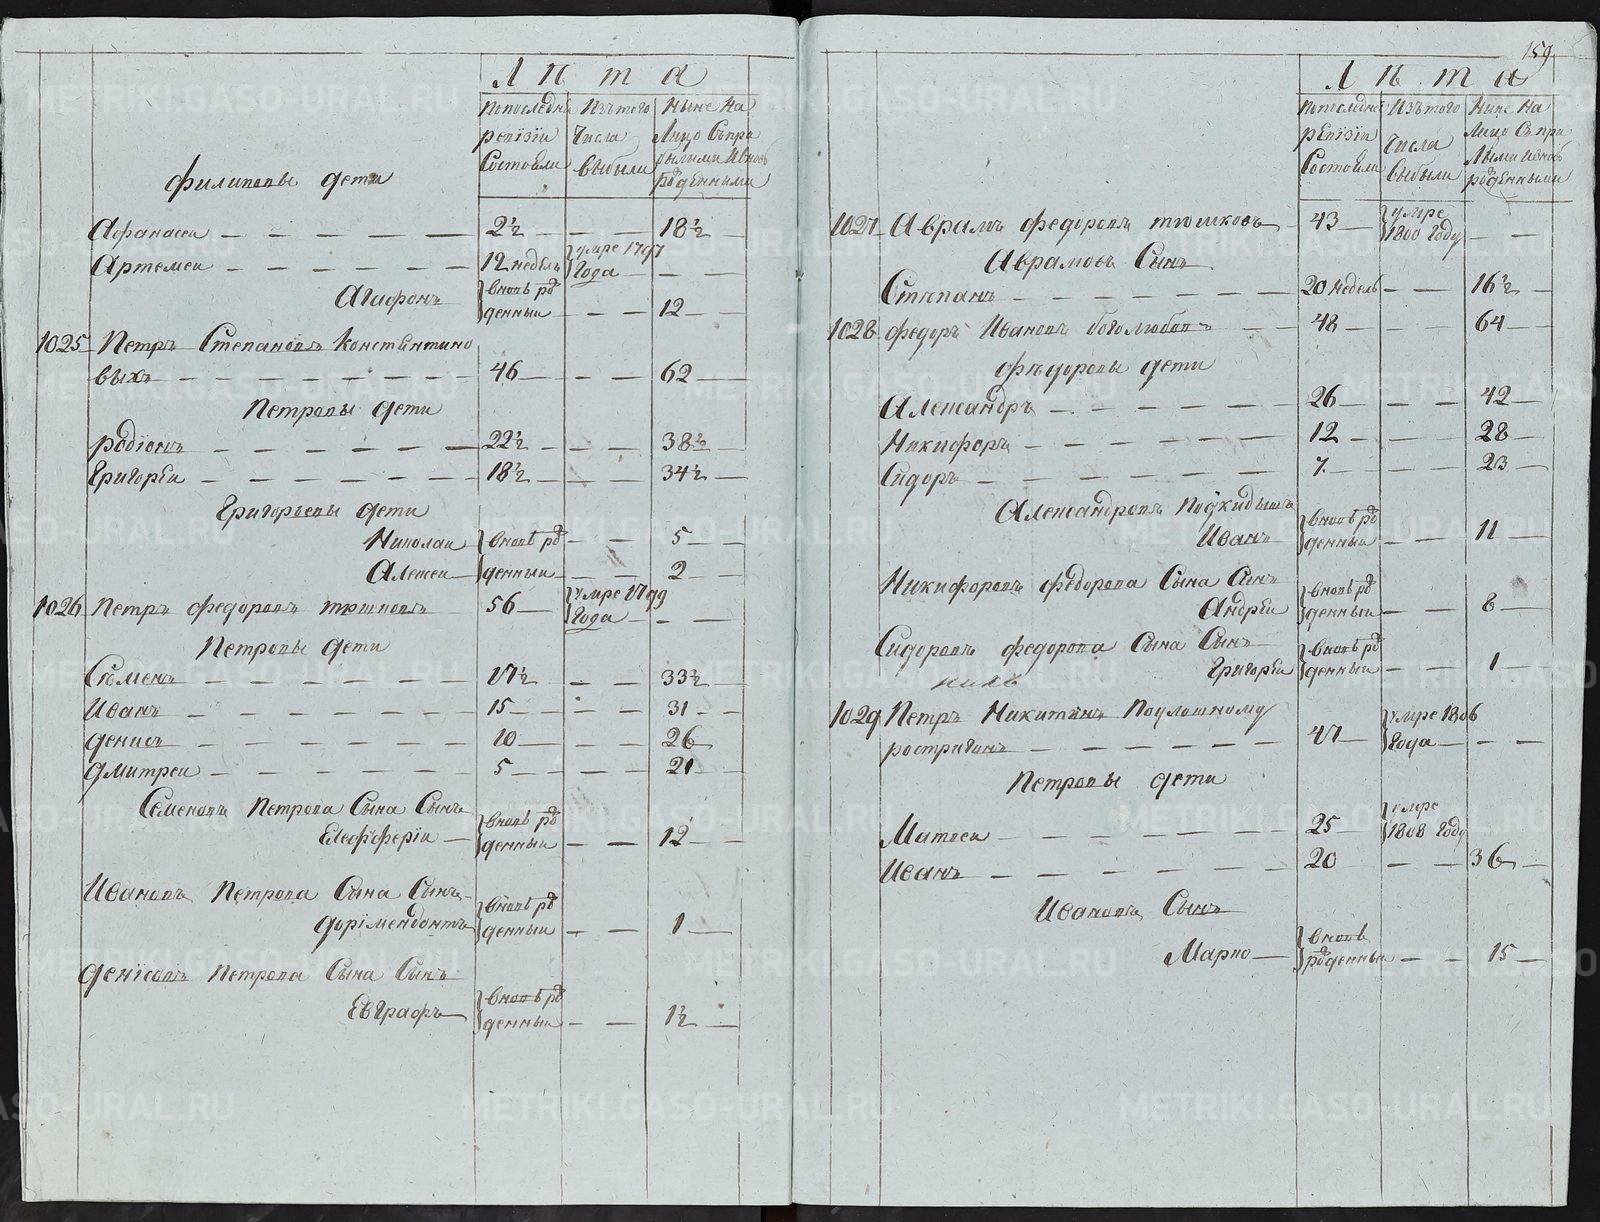 Лѣта
Попоследней Изътого Ныне На
ревізіи Числа Лицо Съпри
Состояли выбыли былыми ивновь
рожденными
Филиповы дети
Афанасеи 2½ 18½
Артемеи 12 недель умре 1797
Года
Агафонъ вновь ро
жденныи 12
1025 Петръ Степановъ Константино
выхъ 46 62
Петровы дети
Родіонъ 22½ 38½
Григореи 18½ 34½
Григорьевы дети
Николаи вновь ро 5
Алексеи жденныи 2
1026 Петръ Федоровъ тюшковъ 56 умре 1799
Года
Петровы дети
Семенъ 17½ 33½
Иванъ 15 31
Денисъ 10 26
Дмитреи 5 21
Семеновъ Петрова Сына Сынъ
Елефферіи вновь ро
жденныи 12
Ивановъ Петрова Сына Сынъ
Дорімендонтъ вновь ро
жденныи 1
Денісовъ Петрова Сына Сынъ
Евграфъ вновь ро
жденныи 1½
159
Лѣта
Попоследней Изътого Ныне На
ревізіи Числа Лицо Съпри
Состояли выбыли лыми ивновь
рожденными
1027 Аврамъ Федоровъ тюшковъ 43 умре
1800 Году
Аврамовъ Сынъ
Степанъ 20 недель 16½
1028 Федоръ Ивановъ боголюбовъ 48 64
Фёдоровы дети
Александръ 26 42
Никифоръ 12 28
Сидоръ 7 23
Александровъ Подкидышъ
Иванъ вновь ро
жденныи 11
Никифоровъ Федорова Сына Сынъ
Андреи вновь ро
жденныи 8
Сидоровъ Федорова Сына Сынъ
Григореи вновь ро
жденныи 1
1029 Петръ Никитинъ Поулошному
ростригинъ 47 умре 1806
Года
Петровы дети
Матвеи 25 умре
1808 Году
Иванъ 20 36
Ивановъ Сынъ
Марко вновь
рожденныи 15
METRIKI.GASO-URAL.RU